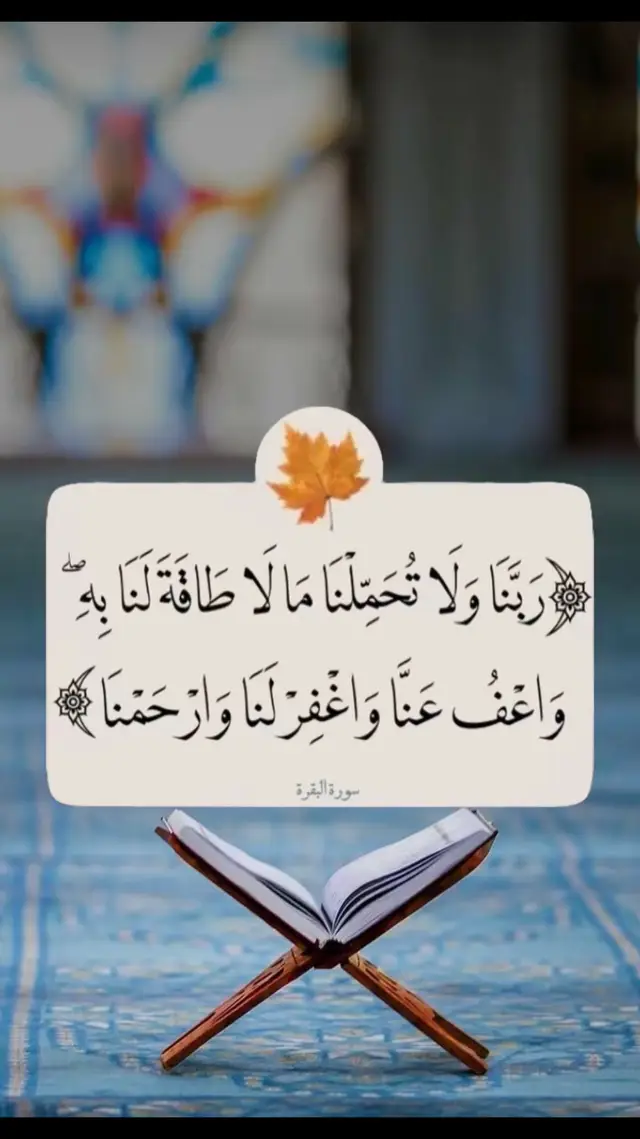 ﴿رَبَّنَا وَلَا تُحَمِّلْنَا مَا لَا طَاقَةَ لَنَا بِهِۖ
وَاعْفُ عَنَّا وَاغْفِرْ لَنَا وَارْحَمْنَا﴾
سورة البقرة